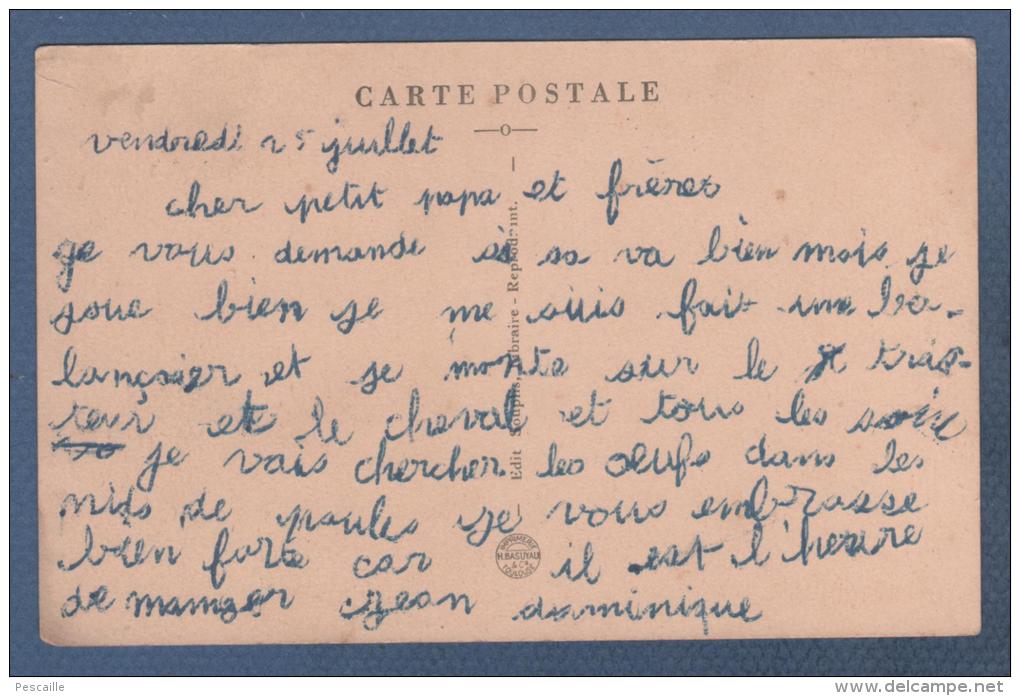 CARTE POSTALE
vendredi 25 juillet
cher petit papa et frères
je vous demande si sa va bien mois je
joue bien je me suis fait une ba-
lançoier et je monte sur le trac-
teur et le cheval et tous les soir
je vais chercher les oeufs dans les
nids de poules je vous embrasse
bien forte car il est l'heure
de manger Jean dominique
Edit Souplis, Libraire - Reprod. int.
IMPRIMERIE
H. BASUYAU
& Cie
TOULOUSE
Pescaille
www.delcampe.net